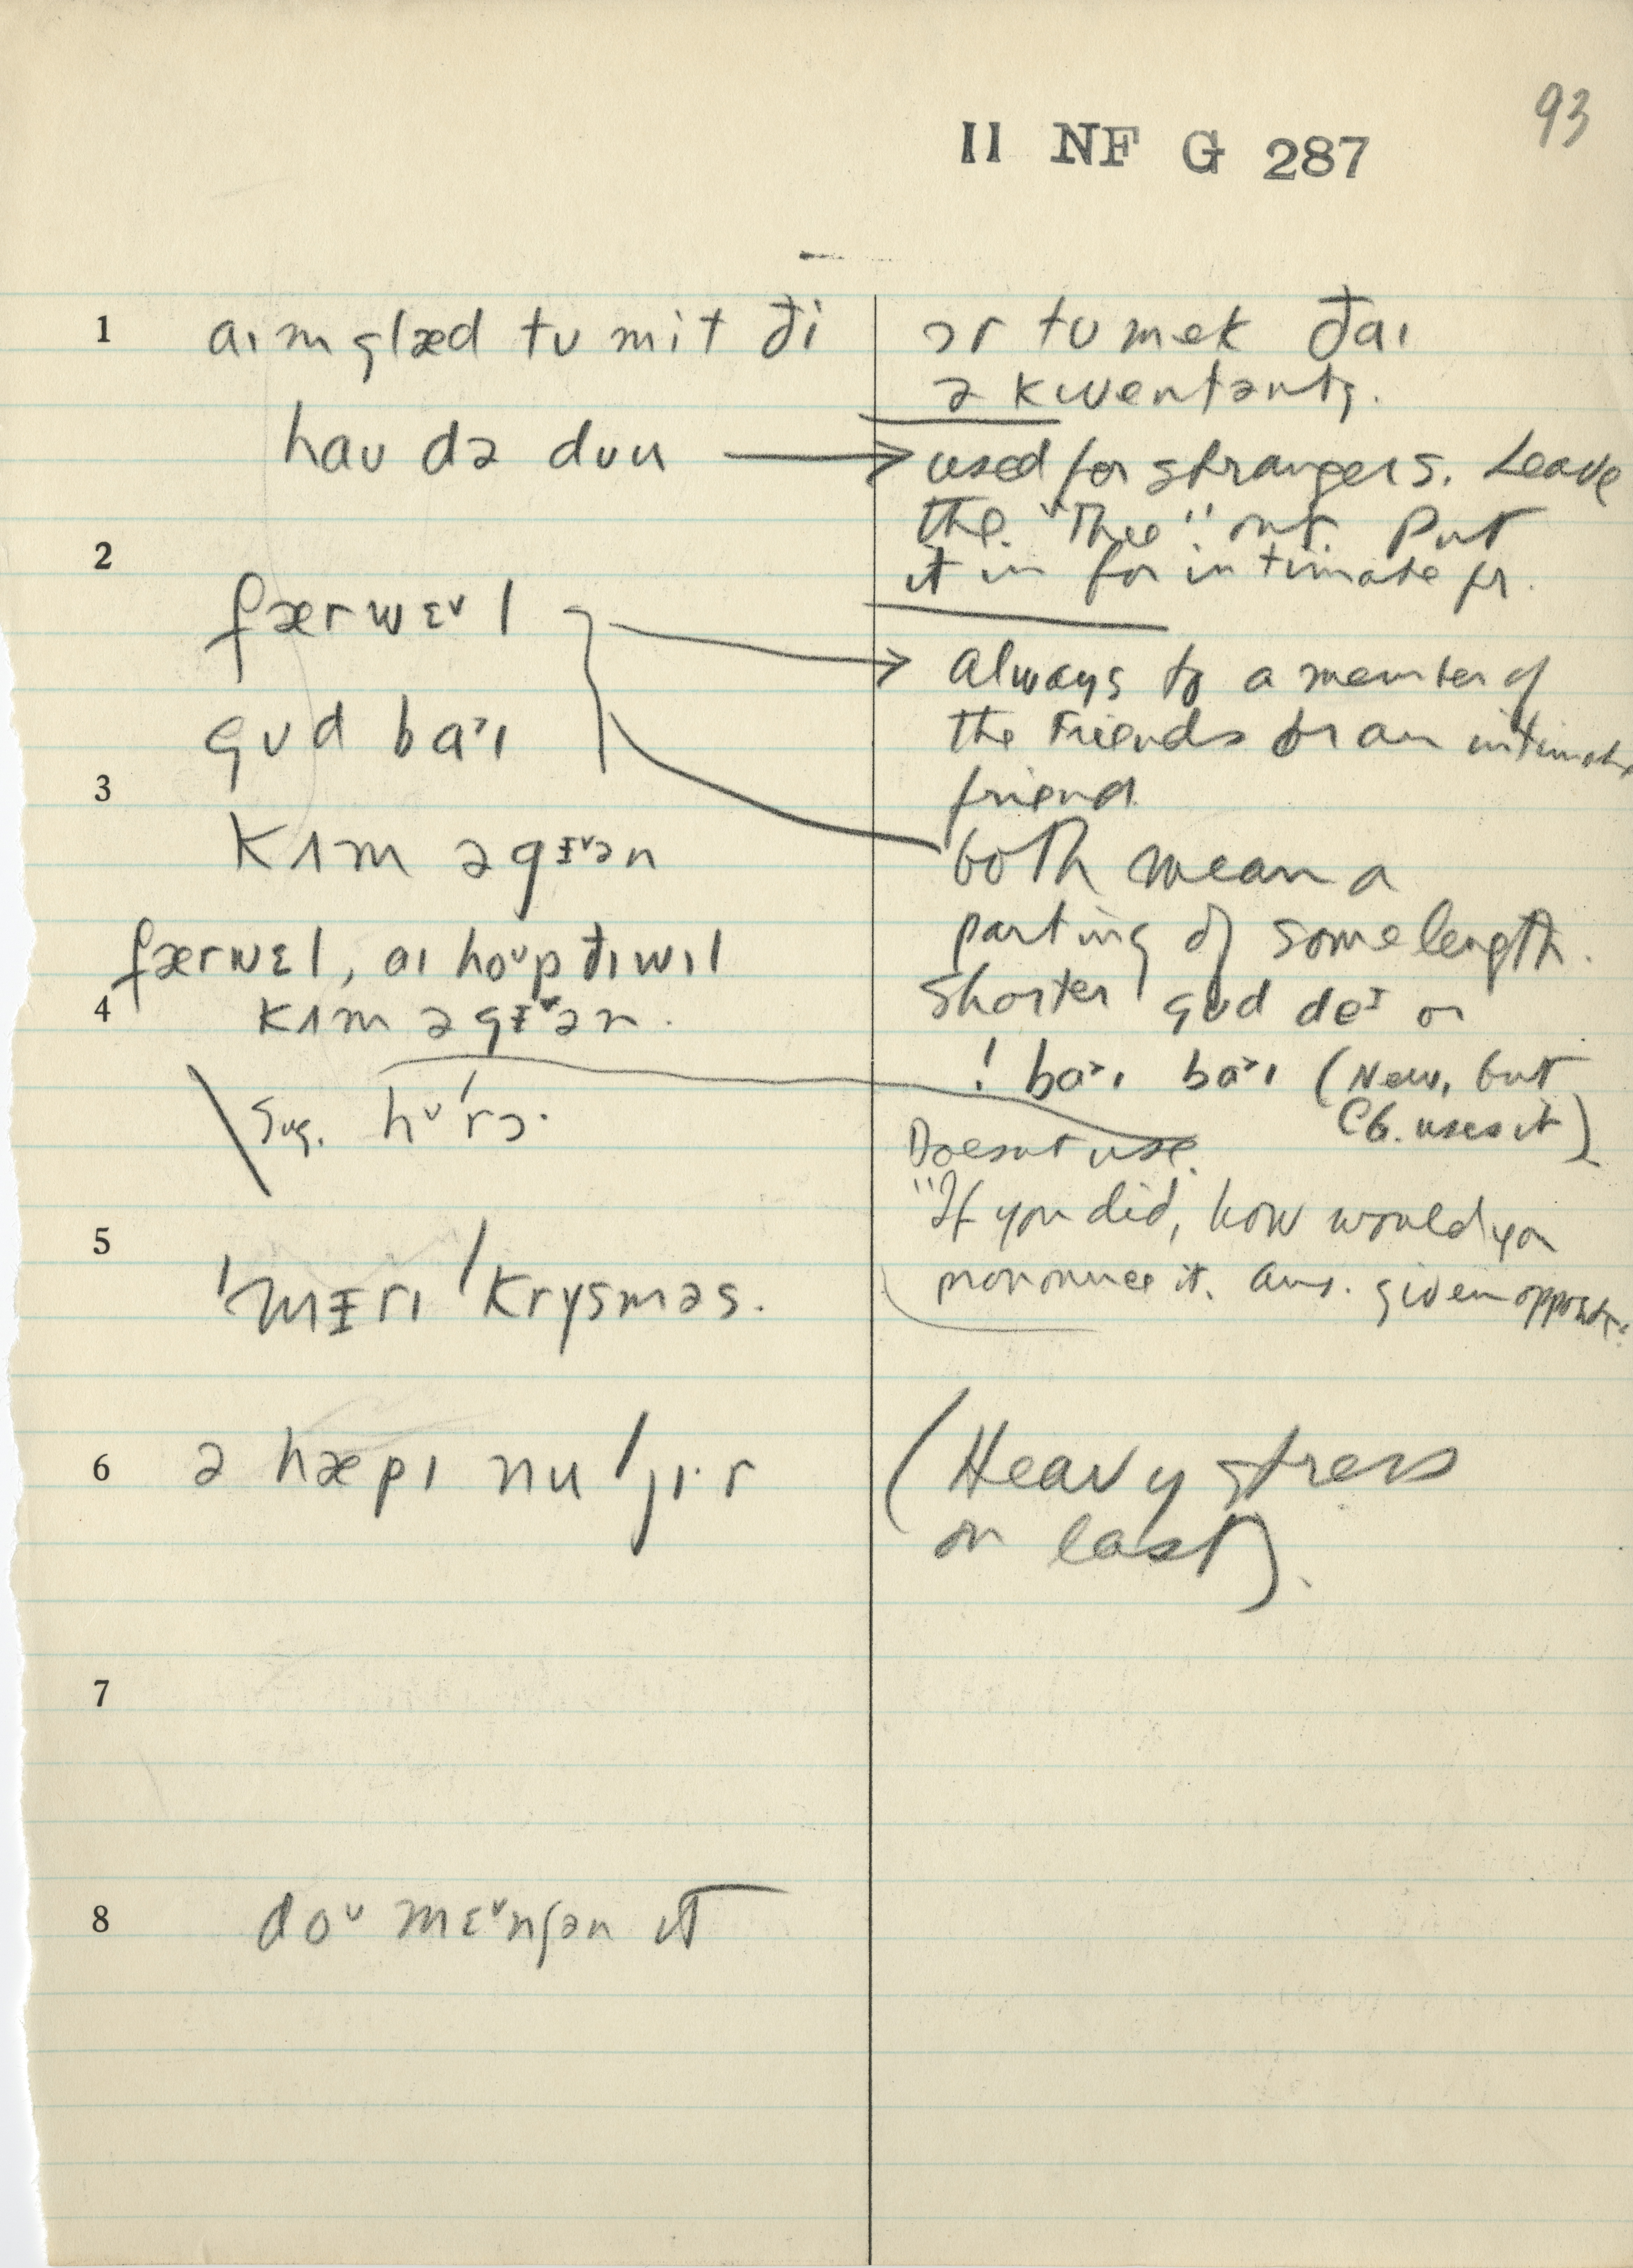 93
II NF G 287
1 aɪm glæd tʊ mit đi
ɔr tʊ mek đaɪ
ə kwentənts.
haʊ də dʊu → used for strangers. Leave
the "Thee" out. Put
it in for intimate fr.
2
færwɛᵛl
gʊd ba˃ɪ
always to a member of
the Friends or an intimate
friend
3
kʌm əgɪᵛən
both mean a
parting of some length.
færwɛl, aɪ hoᵘp đɪ wɪl
4 kʌm əgɪᵛən.
shorter gʊd deᶦ or
! ba˃ɪ ba˃ɪ (New, but
Cb. uses it)
Sug. hʊ'rɔ·
Doesnt use.
"If you did, how would you
pronounce it. Ans. given opposite.
5 'mɪrɪ 'krysməs.
6 ə hæpɪ nu 'jɪ·r
(Heavy stress
on last).
7
8 doᵘ mɛᵛnʃən ɪt